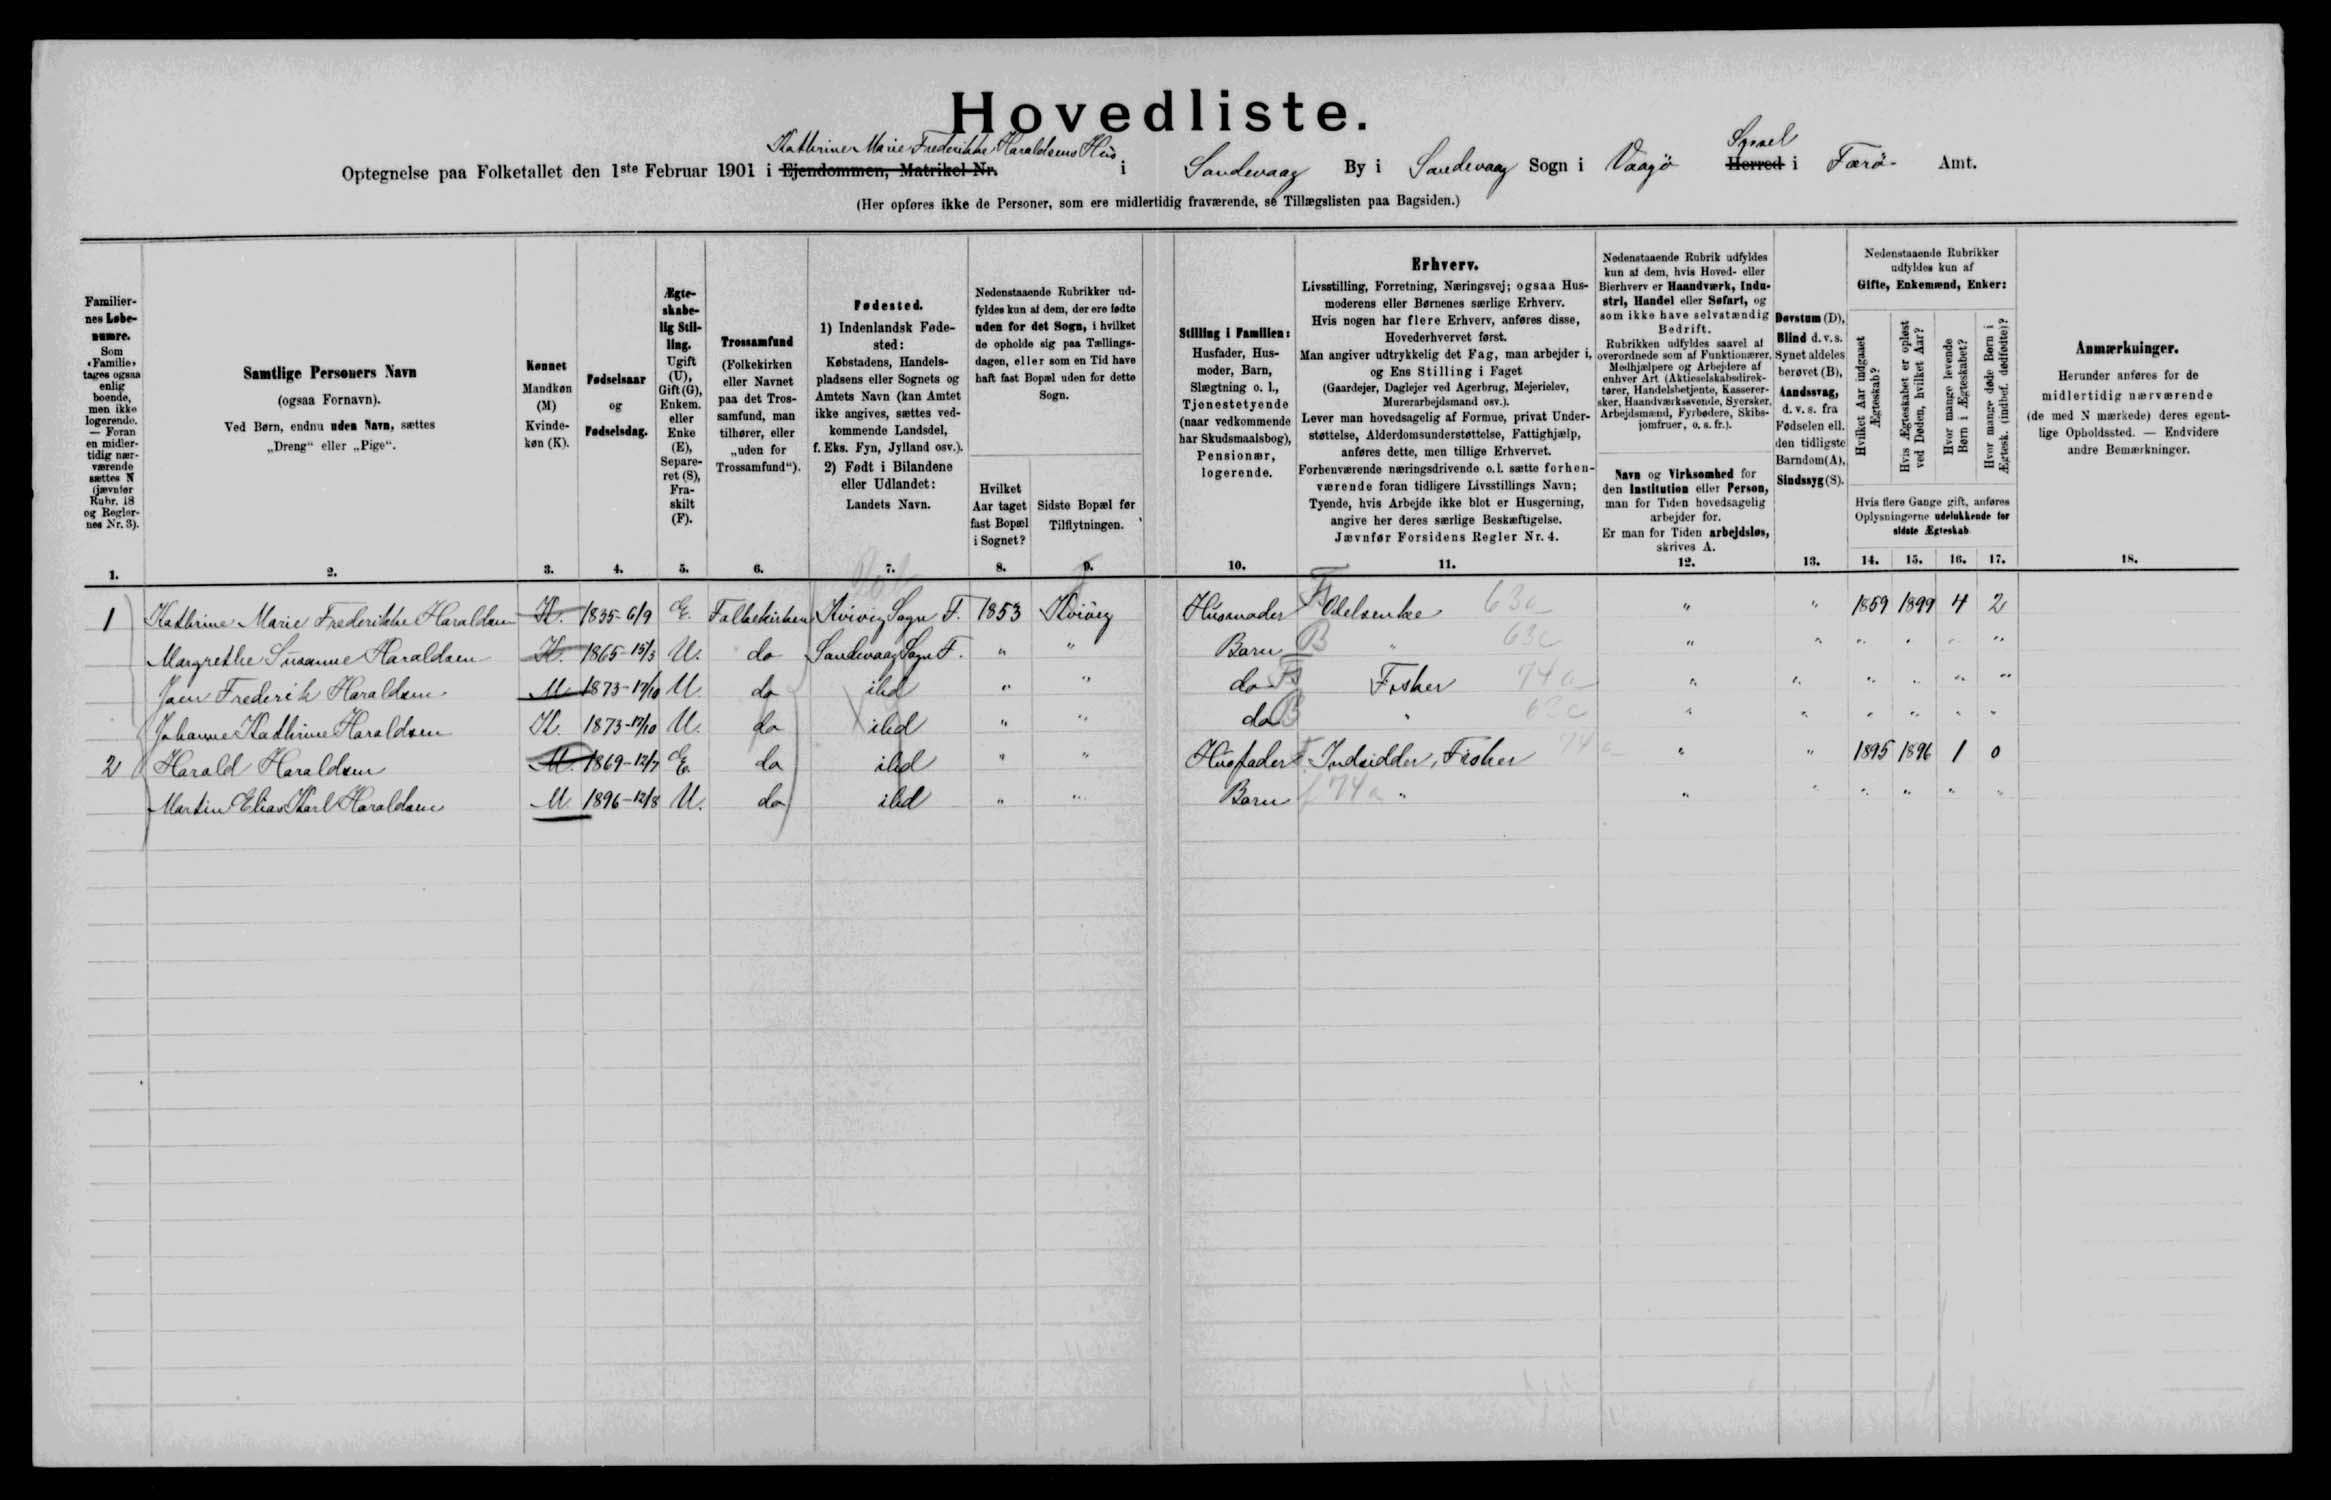 Hovedliste.
Kathrine Marie Frederikke Haraldsens Hus
Syssel
Optegnelse paa Folketallet den 1ste Februar 1901 i Ejendommen, Matrikel-Nr. i Sandevaag By i Sandevaag Sogn i Vaagø Herred i Færø Amt.
(Her opføres ikke de Personer, som ere midlertidig fraværende, se Tillægslisten paa Bagsiden.)
Familier-
nes Løbe-
numre.
Som
«Familie»
tages ogsaa
enlig
boende,
men ikke
logerende.
— Foran
en midler-
tidig nær-
værende
sættes N
(jævnfør
Rubr. 18
og Regler-
nes Nr. 3).
1.
Samtlige Personers Navn
(ogsaa Fornavn).
Ved Børn, endnu uden Navn, sættes
„Dreng“ eller „Pige“.
2.
Kønnet
Mandkøn
(M)
Kvinde-
køn (K).
3.
Fødselsaar
og
Fødselsdag.
4.
Ægte-
skabe-
lig Stil-
ling.
Ugift
(U),
Gift (G),
Enkem.
eller
Enke
(E),
Separe-
ret (S),
Fra-
skilt
(F).
5.
Trossamfund
(Folkekirken
eller Navnet
paa det Tros-
samfund, man
tilhører, eller
„uden for
Trossamfund“).
6.
Fødested.
1) Indenlandsk Føde-
sted:
Købstadens, Handels-
pladsens eller Sognets og
Amtets Navn (kan Amtet
ikke angives, sættes ved-
kommende Landsdel,
f. Eks. Fyn, Jylland osv.).
2) Født i Bilandene
eller Udlandet:
Landets Navn.
7.
Nedenstaaende Rubrikker ud-
fyldes kun af dem, der ere fødte
uden for det Sogn, i hvilket
de opholde sig paa Tællings-
dagen, eller som en Tid have
haft fast Bopæl uden for dette
Sogn.
Hvilket
Aar taget
fast Bopæl
i Sognet?
8.
Sidste Bopæl før
Tilflytningen.
9.
Stilling i Familien:
Husfader, Hus-
moder, Barn,
Slægtning o. l.,
Tjenestetyende
(naar vedkommende
har Skudsmaalsbog),
Pensionær,
logerende.
10.
Erhverv.
Livsstilling, Forretning, Næringsvej; ogsaa Hus-
moderens eller Børnenes særlige Erhverv.
Hvis nogen har flere Erhverv, anføres disse,
Hovederhvervet først.
Man angiver udtrykkelig det Fag, man arbejder i,
og Ens Stilling i Faget
(Gaardejer, Daglejer ved Agerbrug, Mejerielev,
Murerarbejdsmand osv.).
Lever man hovedsagelig af Formue, privat Under-
støttelse, Alderdomsunderstøttelse, Fattighjælp,
anføres dette, men tillige Erhvervet.
Forhenværende næringsdrivende o.l. sætte forhen-
værende foran tidligere Livsstillings Navn;
Tyende, hvis Arbejde ikke blot er Husgerning,
angive her deres særlige Beskæftigelse.
Jævnfør Forsidens Regler Nr. 4.
11.
Nedenstaaende Rubrik udfyldes
kun af dem, hvis Hoved- eller
Bierhverv er Haandværk, Indu-
stri, Handel eller Søfart, og
som ikke have selvstændig
Bedrift.
Rubrikken udfyldes saavel af
overordnede som af Funktionærer,
Medhjælpere og Arbejdere af
enhver Art (Aktieselskabsdirek-
tører, Handelsbetjente, Kasserer-
sker, Haandværkssvende, Syersker,
Arbejdsmænd, Fyrbødere, Skibs-
jomfruer, o. s. fr.).
Navn og Virksomhed for
den Institution eller Person,
man for Tiden hovedsagelig
arbejder for.
Er man for Tiden arbejdsløs,
skrives A.
12.
Døvstum (D),
Blind d. v. s.
Synet aldeles
berøvet (B),
Aandssvag,
d. v. s. fra
Fødselen ell.
den tidligste
Barndom (A),
Sindssyg (S).
13.
Nedenstaaende Rubrikker
udfyldes kun af
Gifte, Enkemænd, Enker:
Hvilket Aar indgaaet
Ægteskab?
Hvis Ægteskabet er opløst
ved Døden, hvilket Aar?
Hvor mange levende
Børn i Ægteskabet?
Hvor mange døde Børn i
Ægtesk. (indbef. dødfødte)?
Hvis flere Gange gift, anføres
Oplysningerne udelukkende for
sidste Ægteskab
14. 15. 16. 17.
Anmærkninger.
Herunder anføres for de
midlertidig nærværende
(de med N mærkede) deres egent-
lige Opholdssted. — Endvidere
andre Bemærkninger.
18.
1 Kathrine Marie Frederikke Haraldsen K. 1835-6/9 E. Folkekirken Kvivig Sogn F. 1853 Kvivig Husmoder Fs Odelsenke 63a " " 1859 1899 4 2
Margrethe Susanne Haraldsen K. 1865-15/3 U. do Sandevaag Sogn F. " " Barn B " 63c " " " " " "
Joen Frederik Haraldsen M 1873-17/10 U do ibd " " do Fs Fisker 74a " " " " " "
Johanne Kathrine Haraldsen K. 1873-17/10 U. do ibd " " do B " 63c " " " " " "
2 Harald Haraldsen M. 1869-12/7 E. do ibd " " Husfader Indsidder, Fisker 74a " " 1895 1896 1 0
Martin Elias Karl Haraldsen M 1896-12/8 U. do ibd " " Barn f 74a " " " " " " "